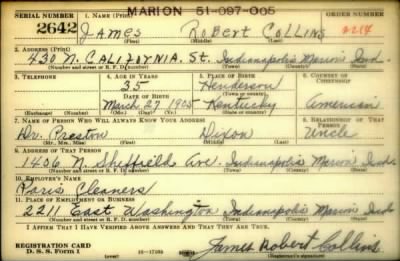 MARION 51-097-005
SERIAL NUMBER 1. NAME (Print) ORDER NUMBER
2642 JAMES ROBERT COLLINS
(First) (Middle) (Last)
2. ADDRESS (Print)
430 N. CALIFOYNIA. St. Indianapolis Marion Ind.
(Number and street or R. F. D. number) (Town) (County) (State)
3. TELEPHONE 4. AGE IN YEARS 5. PLACE OF BIRTH 6. COUNTRY OF CITIZENSHIP
35 Henderson
(Town or county)
DATE OF BIRTH
March 27 1905 Kentucky American
(Exchange) (Number) (Mo.) (Day) (Yr.) (State or country)
7. NAME OF PERSON WHO WILL ALWAYS KNOW YOUR ADDRESS 8. RELATIONSHIP OF THAT PERSON
Mr. Preston Dixon Uncle
(Mr., Mrs., Miss) (First) (Middle) (Last)
9. ADDRESS OF THAT PERSON
1406 N. Sheffield Ave. Indianapolis Marion Ind.
(Number and street or R. F. D. number) (Town) (County) (State)
10. EMPLOYER'S NAME
Paris Cleaners
11. PLACE OF EMPLOYMENT OR BUSINESS
2211 East Washington Indianapolis Marion Ind
(Number and street or R. F. D. number) (Town) (County) (State)
I AFFIRM THAT I HAVE VERIFIED ABOVE ANSWERS AND THAT THEY ARE TRUE.
REGISTRATION CARD
D. S. S. Form 1 16-17105 James Robert Collins